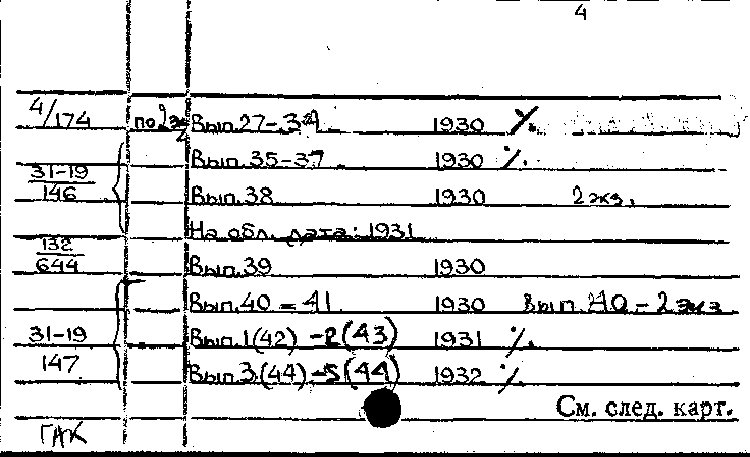 4
4/174 по 2 эк Вып. 27-34 1930 %.
Вып. 35-37 1930 %.
31-19
146 Вып. 38 1930 2 экз.
На обл. дата: 1931
132
644 Вып. 39 1930
Вып. 40 = 41 1930 Вып. 40 - 2 экз
31-19 Вып. 1(42) - 2(43) 1931 %.
147 Вып. 3(44) - 5(44) 1932 %.
См. след. карт.
ГАК